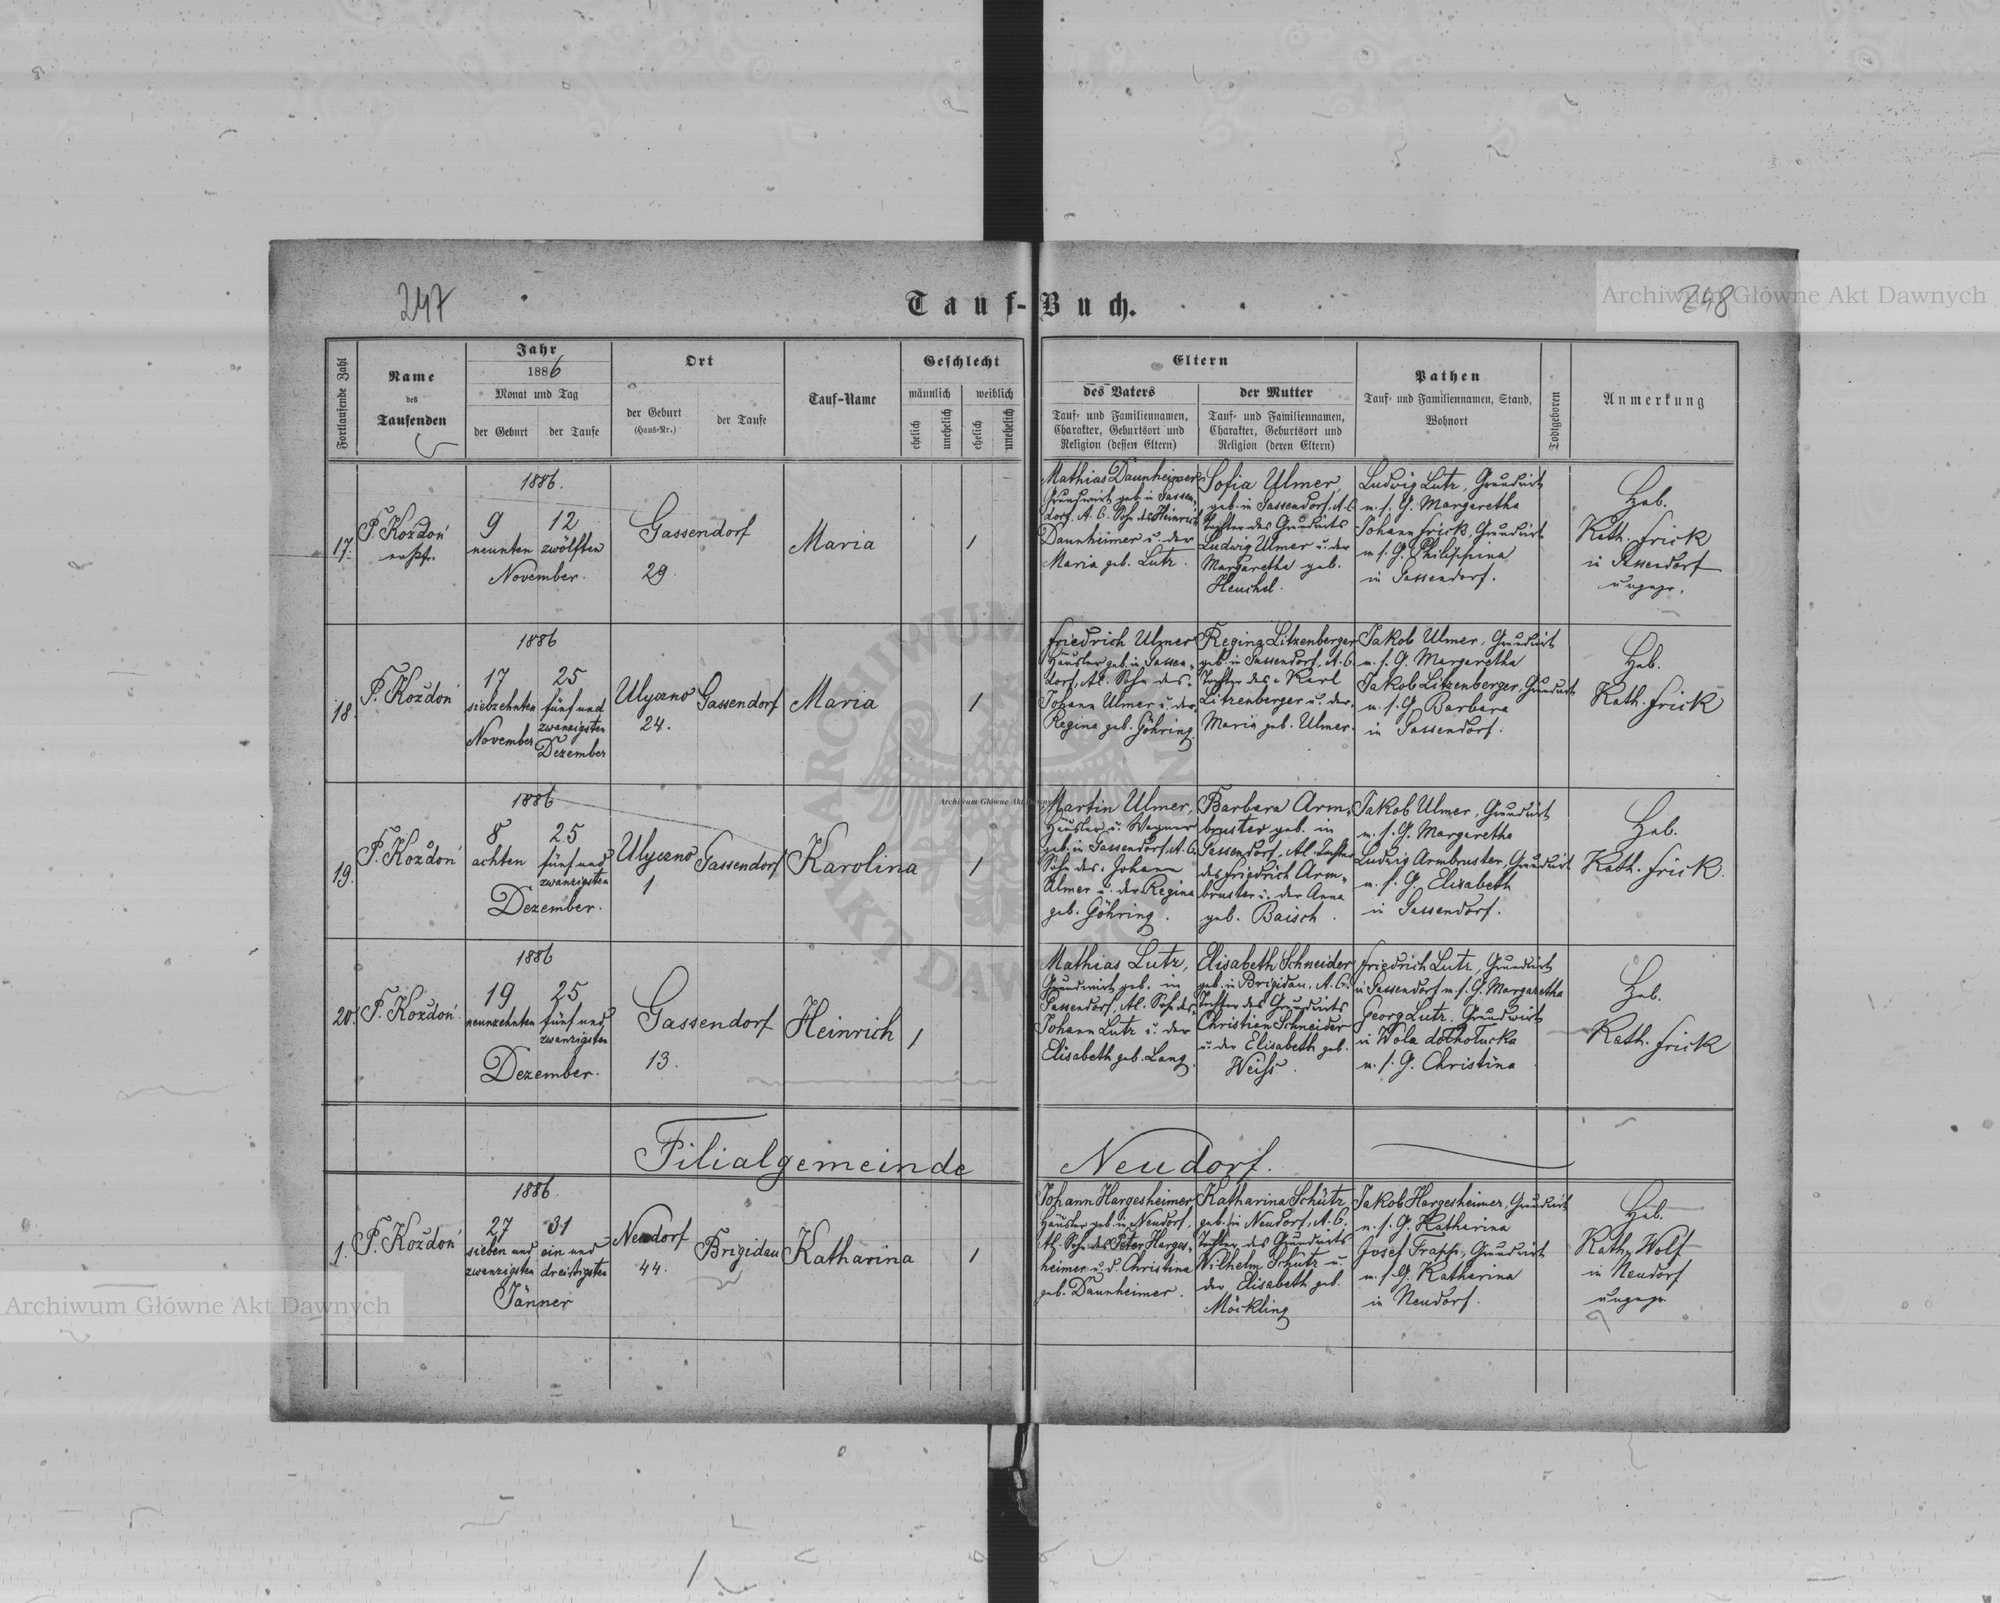 247
Tauf-Buch.
248
Archiwum Główne Akt Dawnych
Fortlaufende Zahl
Name
des
Taufenden
Jahr
1886
Monat und Tag
der Geburt
der Taufe
Ort
der Geburt
(Haus-Nr.)
der Taufe
Tauf-Name
Geschlecht
männlich
weiblich
ehelich
unehelich
ehelich
unehelich
Eltern
des Vaters
Tauf- und Familiennamen,
Charakter, Geburtsort und
Religion (dessen Eltern)
der Mutter
Tauf- und Familiennamen,
Charakter, Geburtsort und
Religion (deren Eltern)
Pathen
Tauf- und Familiennamen, Stand,
Wohnort
Todtgeboren
Anmerkung
17.
P. Kozdoń
1886.
9
neunten
12
zwölften
November.
Gassendorf
29.
Maria
1
Mathias Daunheimer
Grundwirt geb. in Gassen-
dorf, A. C. Sohn des Heinrich
Daunheimer u. der
Maria geb. Lutz.
Sofia Ulmer,
geb. in Gassendorf, A. C.
Tochter des Grundwirts
Ludwig Ulmer u. der
Margaretha geb.
Henchel.
Ludwig Lutz, Grundwirt
u. s. G. Margaretha
Johann Frick, Grundwirt
u. s. G. Philippina
in Gassendorf.
Heb.
Kath. Frick
in Gassendorf
ungepr.
18.
P. Kozdoń
1886
17
siebzehnten
November
25
fünf und
zwanzigsten
Dezember
Ulyczno
24.
Gassendorf
Maria
1
Friedrich Ulmer
Häusler geb. in Gassen-
dorf, A. C. Sohn des
Johann Ulmer u. der
Regina geb. Göhring.
Regina Litzenberger
geb. in Gassendorf, A. C.
Tochter des Karl
Litzenberger u. der
Maria geb. Ulmer.
Jakob Ulmer, Grundwirt
u. s. G. Margaretha
Jakob Litzenberger, Grundwirt
u. s. G. Barbara
in Gassendorf.
Heb.
Kath. Frick
19.
P. Kozdoń
1886
8
achten
25
fünf und
zwanzigsten
Dezember.
Ulyczno
1
Gassendorf
Karolina
1
Martin Ulmer,
Häusler u. Wagner
geb. in Gassendorf, A. C.
Sohn des Johann
Ulmer u. der Regina
geb. Göhring.
Barbara Arm-
bruster geb. in
Gassendorf, A. C. Tochter
des Friedrich Arm-
bruster u. der Anna
geb. Baisch.
Jakob Ulmer, Grundwirt
u. s. G. Margaretha
Ludwig Armbruster, Grundwirt
u. s. G. Elisabeth
in Gassendorf.
Heb.
Kath. Frick.
20.
P. Kozdoń.
1886
19
neunzehnten
25
fünf und
zwanzigsten
Dezember.
Gassendorf
13.
Heinrich
1
Mathias Lutz,
Grundwirt geb. in
Gassendorf, A. C. Sohn des
Johann Lutz u. der
Elisabeth geb. Lang.
Elisabeth Schneider
geb. in Brigidau, A. C.
Tochter des Grundwirts
Christian Schneider
u. der Elisabeth geb.
Weiss.
Friedrich Lutz, Grundwirt
in Gassendorf u. s. G. Margaretha
Georg Lutz, Grundwirt
in Wola dołhołucka
u. s. G. Christina
Heb.
Kath. Frick
Filialgemeinde Neudorf.
1.
P. Kozdoń
1886.
27
sieben und
zwanzigsten
31
ein und
dreissigsten
Jänner
Neudorf
44.
Brigidau
Katharina
1
Johann Hargesheimer,
Häusler geb. in Neudorf,
A. C. Sohn des Peter Harges-
heimer u. d. Christina
geb. Daunheimer.
Katharina Schütz
geb. in Neudorf, A. C.
Tochter des Grundwirts
Wilhelm Schütz u.
der Elisabeth geb.
Möckling
Jakob Hargesheimer, Grundwirt
u. s. G. Katharina
Josef Trapp, Grundwirt
u. s. G. Katharina
in Neudorf.
Heb.
Kath. Wolf
in Neudorf
ungepr.
Archiwum Główne Akt Dawnych